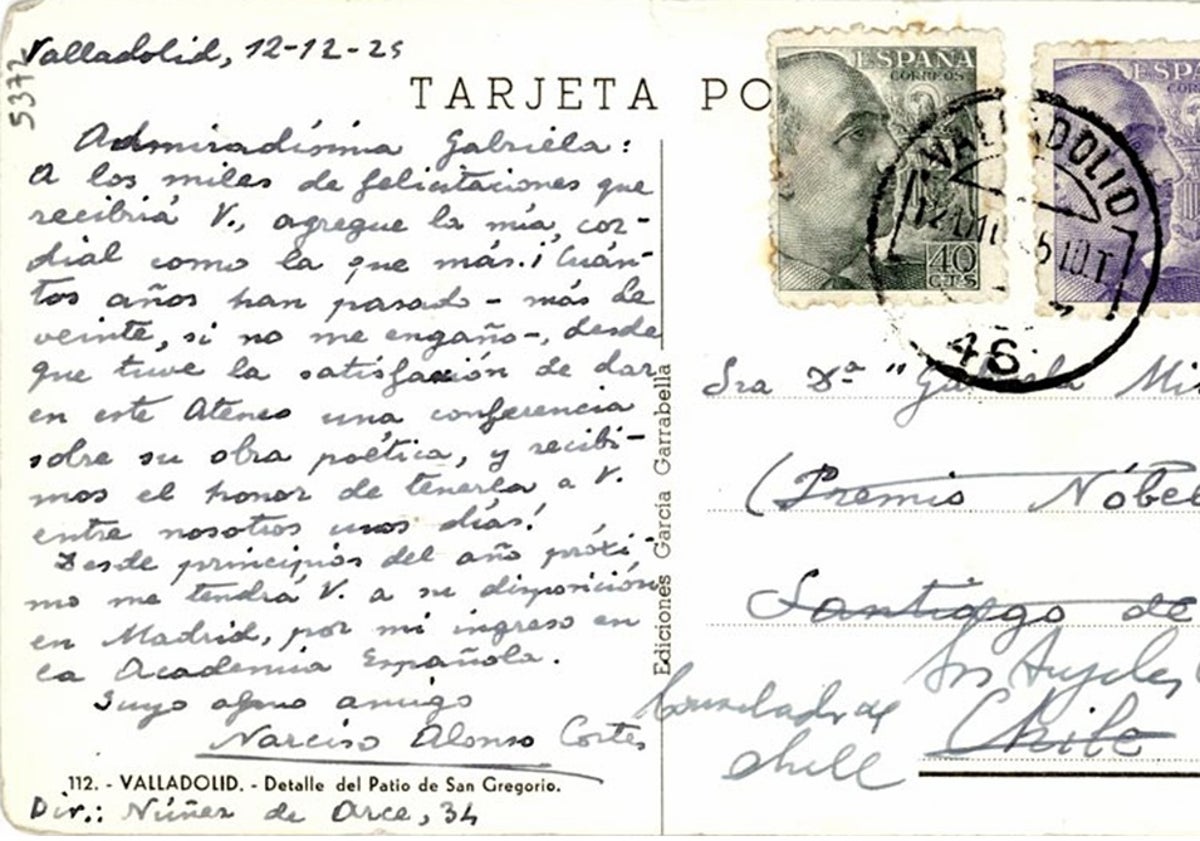 5372
Valladolid, 12-12-25
TARJETA PO
Admiradísima Gabriela:
A los miles de felicitaciones que
recibirá V., agregue la mía, cor-
dial como la que más. ¡Cuán-
tos años han pasado - más de
veinte, si no me engaño -, desde
que tuve la satisfacción de dar
en este Ateneo una conferencia
sobre su obra poética, y recibi-
mos el honor de tenerla a V.
entre nosotros unos días!
Desde principios del año próxi-
mo me tendrá V. a su disposición
en Madrid, por mi ingreso en
la Academia Española.
Suyo afmo amigo
Narciso Alonso Cortés
112. - VALLADOLID. - Detalle del Patio de San Gregorio.
Dir.: Núñez de Arce, 34
Ediciones García Garrabella
ESPAÑA
CORREOS
40
CTS
ESPA
VALLADOLID
46
Sra Dª "Gabriela Mi
(Premio Nóbel
Santiago de
Los Angeles
Consulado de
Chile
Chile